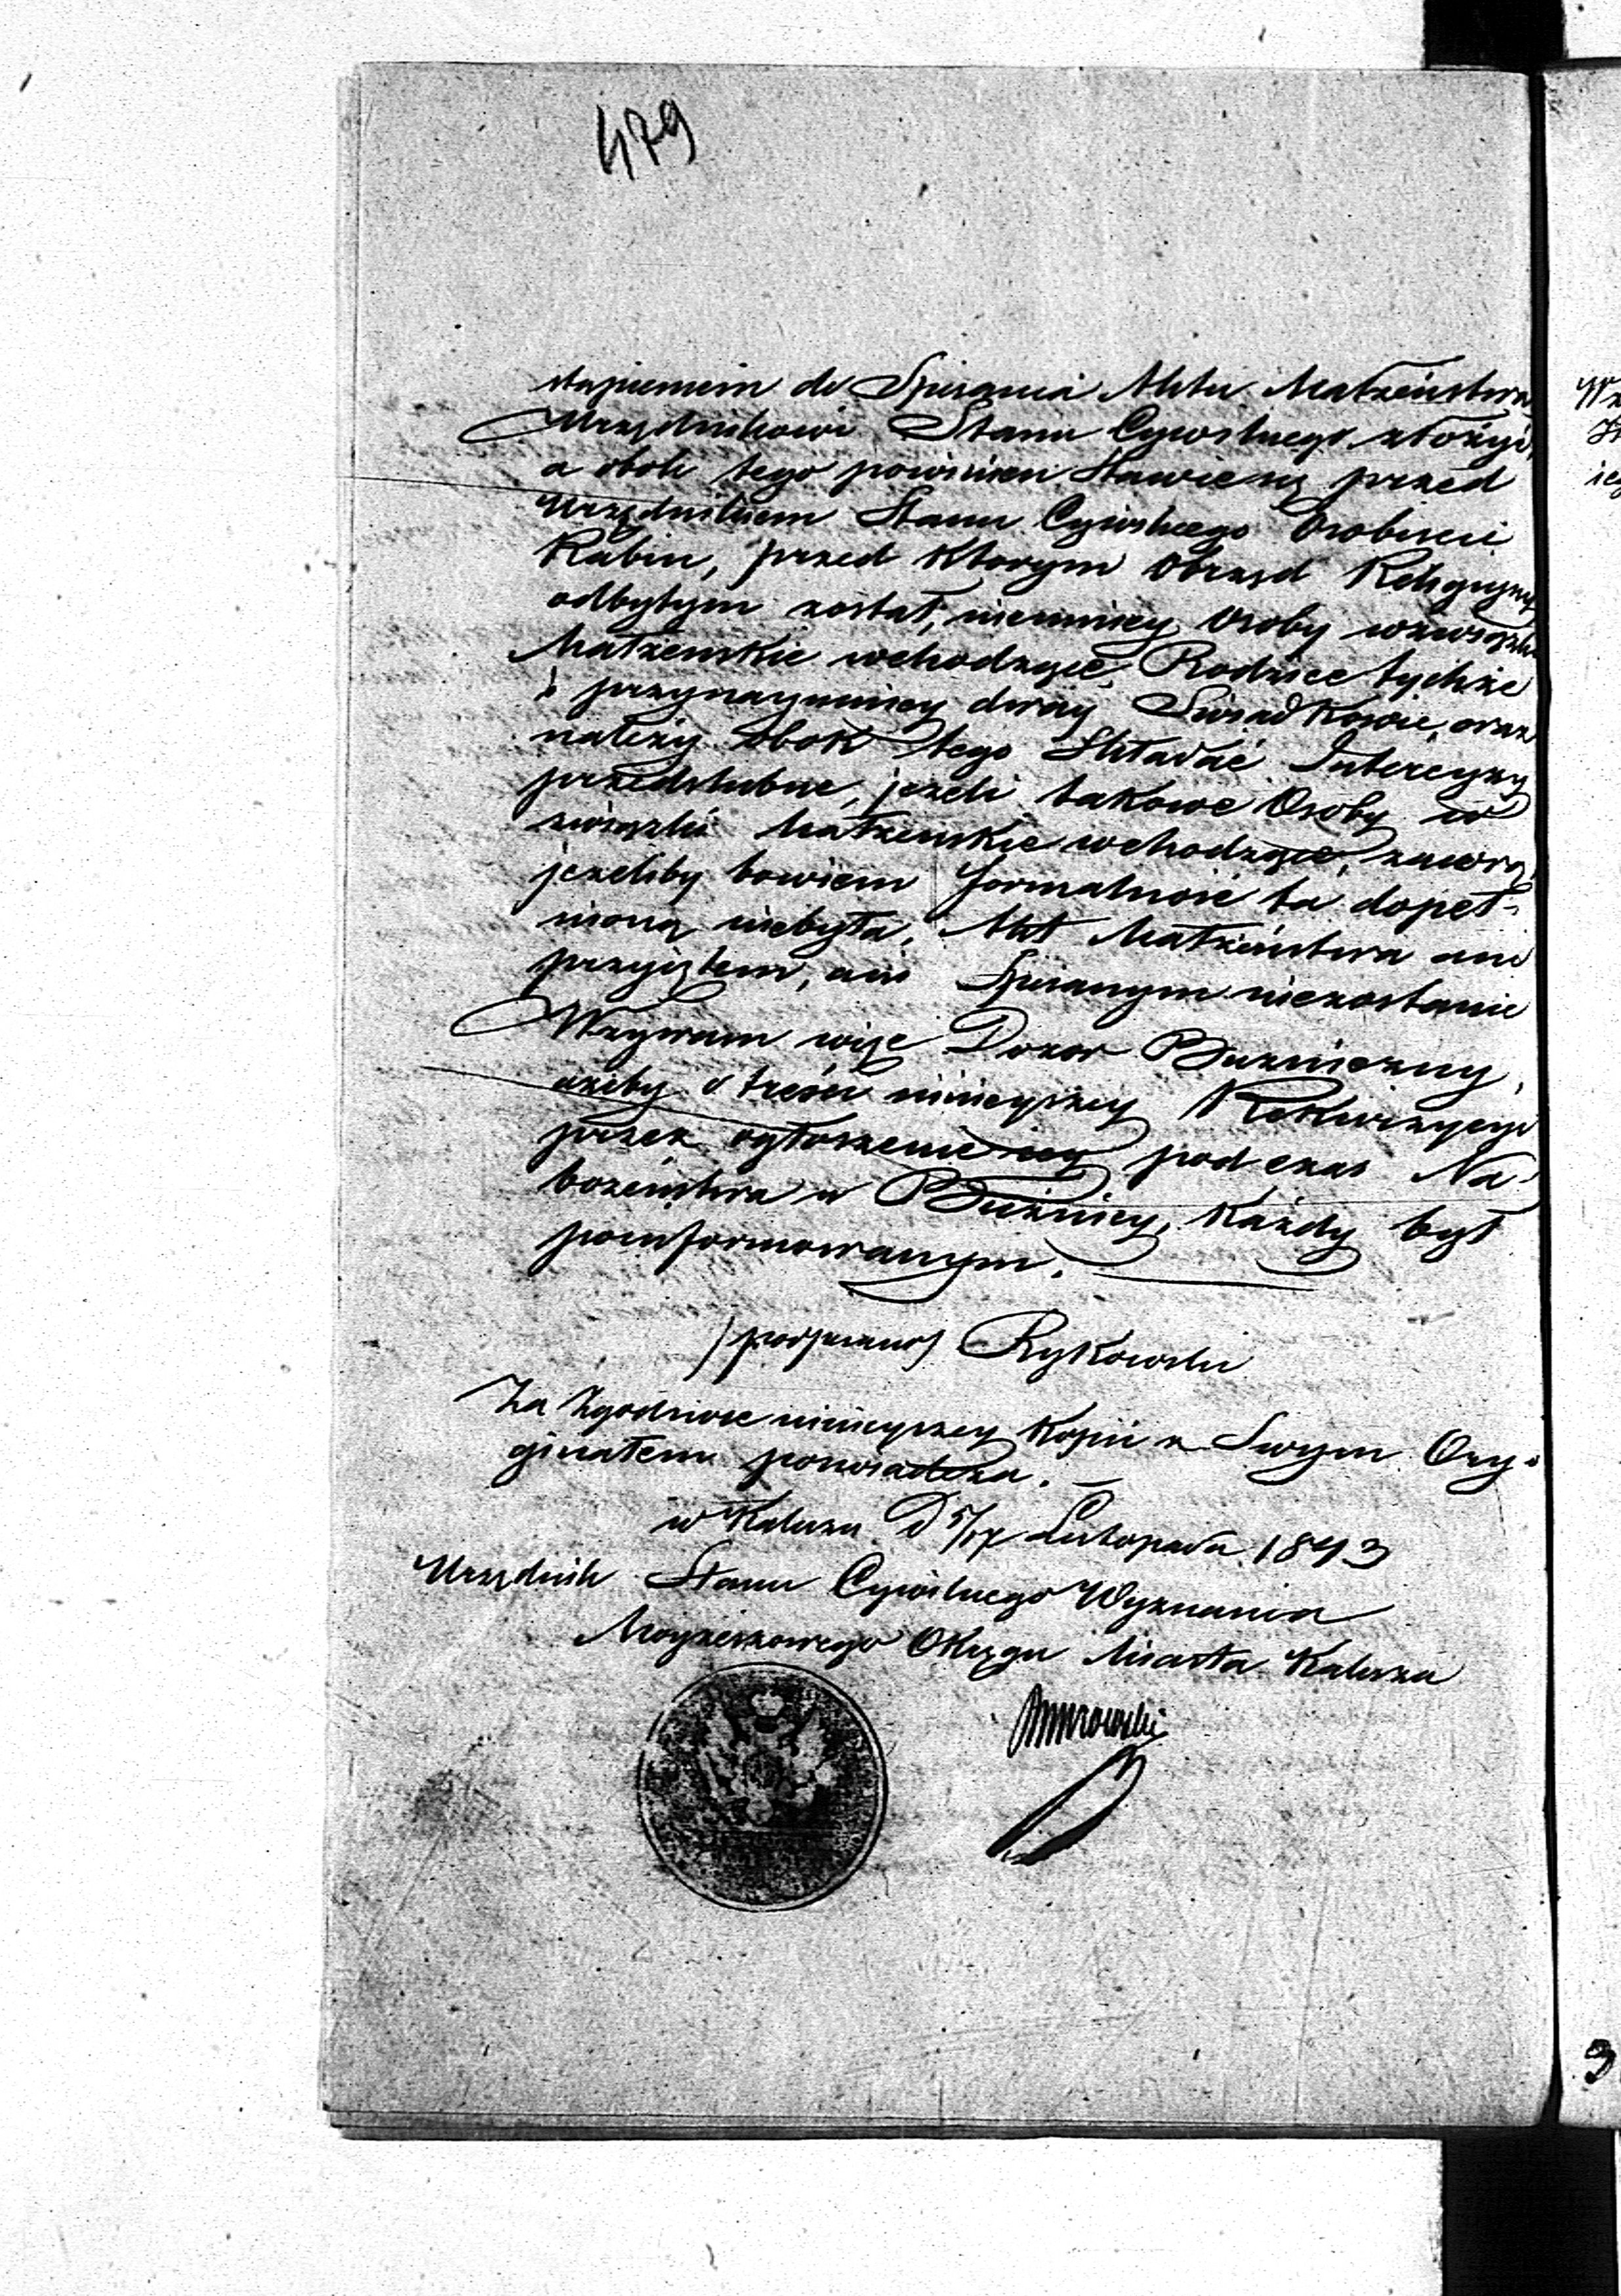 479
stąpieniem do Spisania Aktu Małżeństwa
Urzędnikowi Stanu Cywilnego złożyć,
a obok tego powinien Stawić się przed
Urzędnikiem Stanu Cywilnego Osobiscie
Rabin, przed Ktorym Obrząd Religijny
odbytym został, niemniey Osoby wzwiązki
Małżenskie wchodzące, Rodzice tychże
i przynaymniey dwaj Swiadkowie, oraz
należy Obok tego Składać Intercyzy
przedslubne, jeżeli takowe Osoby w
związki Małżenskie wchodzące, zawrą,
jeżeliby bowiem formalność ta dopeł-
nioną niebyła, Akt Małżeństwa ani
przyiętem, ani Spisanym niezostanie
Wzywam więc Dozor Bużniczny,
ażeby o treści ninieyszey Rekwizycyi
przez ogłoszenie iey podczas Na-
bożeństwa w Bużnicy, Każdy był
poinformowanym.
/podpisano/ Rykowski
Za Zgodność ninieyszey Kopii z Swym Ory-
ginałem poswiadcza.
w Kaliszu D 5/17 Listopada 1843
Urzędnik Stanu Cywilnego Wyznania
Moyżeszowego Okręgu Miasta Kalisza